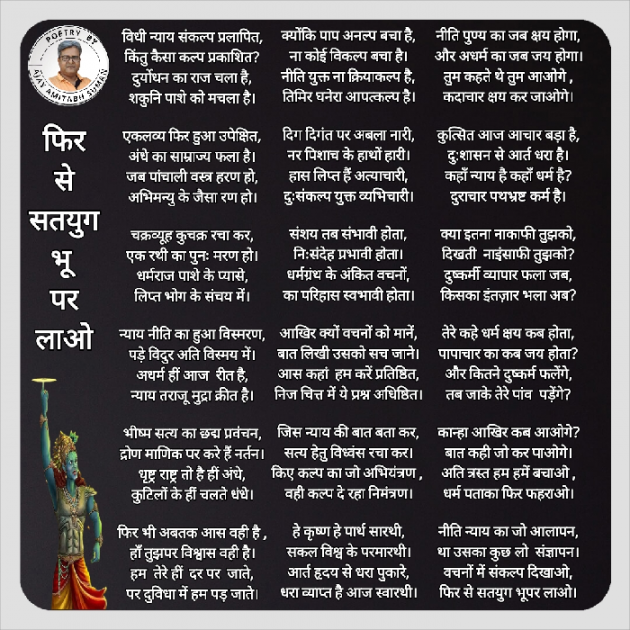 POETRY BY
AJAY AMITABH SUMAN
फिर
से
सतयुग
भू
पर
लाओ
विधी न्याय संकल्प प्रलापित,
किंतु कैसा कल्प प्रकाशित?
दुर्योधन का राज चला है,
शकुनि पाशे को मचला है।
एकलव्य फिर हुआ उपेक्षित,
अंधे का साम्राज्य फला है।
जब पांचाली वस्त्र हरण हो,
अभिमन्यु के जैसा रण हो।
चक्रव्यूह कुचक्र रचा कर,
एक रथी का पुनः मरण हो।
धर्मराज पाशे के प्यासे,
लिप्त भोग के संचय में।
न्याय नीति का हुआ विस्मरण,
पड़े विदुर अति विस्मय में।
अधर्म हीं आज रीत है,
न्याय तराजू मुद्रा क्रीत है।
भीष्म सत्य का छद्म प्रवंचन,
द्रोण माणिक पर करे हैं नर्तन।
धृष्ट्र राष्ट्र तो है हीं अंधे,
कुटिलों के हीं चलते धंधे।
फिर भी अबतक आस वही है ,
हाँ तुझपर विश्वास वही है।
हम तेरे हीं दर पर जाते,
पर दुविधा में हम पड़ जाते।
क्योंकि पाप अनल्प बचा है,
ना कोई विकल्प बचा है।
नीति युक्त ना क्रियाकल्प है,
तिमिर घनेरा आपत्कल्प है।
दिग दिगंत पर अबला नारी,
नर पिशाच के हाथों हारी।
हास लिप्त हैं अत्याचारी,
दुःसंकल्प युक्त व्यभिचारी।
संशय तब संभावी होता,
निःसंदेह प्रभावी होता।
धर्मग्रंथ के अंकित वचनों,
का परिहास स्वभावी होता।
आखिर क्यों वचनों को मानें,
बात लिखी उसको सच जाने।
आस कहां हम करें प्रतिष्ठित,
निज चित्त में ये प्रश्न अधिष्ठित।
जिस न्याय की बात बता कर,
सत्य हेतु विध्वंस रचा कर।
किए कल्प का जो अभियंत्रण ,
वही कल्प दे रहा निमंत्रण।
हे कृष्ण हे पार्थ सारथी,
सकल विश्व के परमारथी।
आर्त हृदय से धरा पुकारे,
धरा व्याप्त है आज स्वारथी।
नीति पुण्य का जब क्षय होगा,
और अधर्म का जब जय होगा।
तुम कहते थे तुम आओगे ,
कदाचार क्षय कर जाओगे।
कुत्सित आज आचार बड़ा है,
दुःशासन से आर्त धरा है।
कहाँ न्याय है कहाँ धर्म है?
दुराचार पथभ्रष्ट कर्म है।
क्या इतना नाकाफी तुझको,
दिखती नाइंसाफी तुझको?
दुष्कर्मी व्यापार फला जब,
किसका इंतज़ार भला अब?
तेरे कहे धर्म क्षय कब होता,
पापाचार का कब जय होता?
और कितने दुष्कर्म फलेंगे,
तब जाके तेरे पांव पड़ेंगे?
कान्हा आखिर कब आओगे?
बात कही जो कर पाओगे।
अति त्रस्त हम हमें बचाओ ,
धर्म पताका फिर फहराओ।
नीति न्याय का जो आलापन,
था उसका कुछ लो संज्ञापन।
वचनों में संकल्प दिखाओ,
फिर से सतयुग भूपर लाओ।